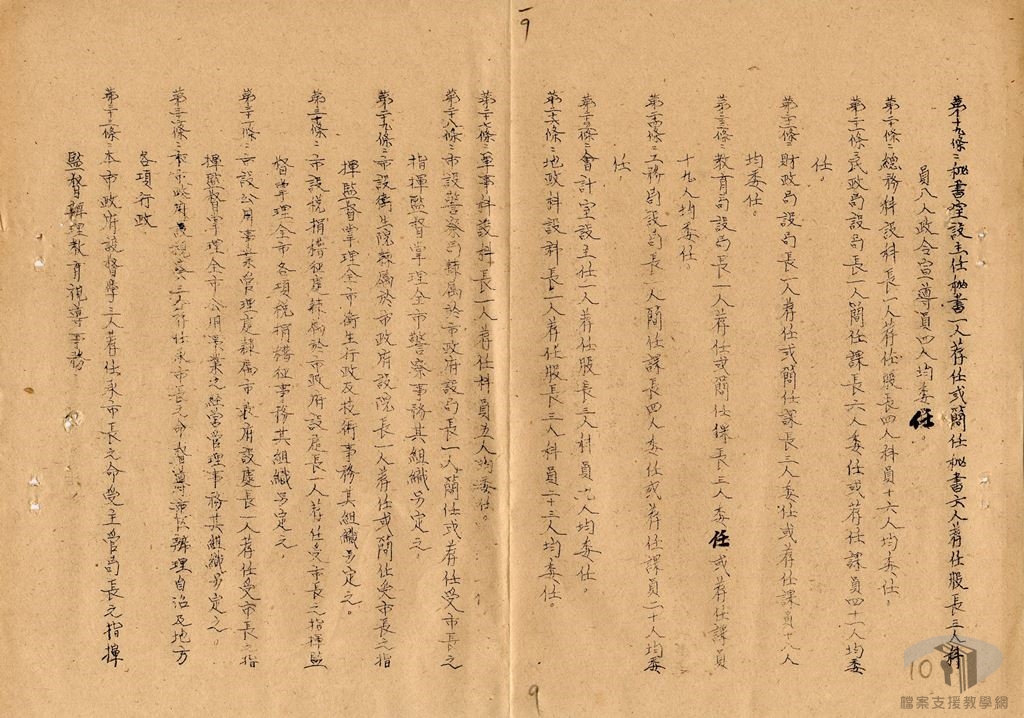 第十九條：秘書室設主任秘書一人荐任或簡任秘書六人荐任股長三人科
員八人政令宣導員四人均委任。
第二十條：總務科設科長一人荐任股長四人科員十六人均委任，
第二十一條：民政局設局長一人簡任課長六人委任或荐任課員四十一人均委
任，
第二十二條：財政局設局長一人荐任或簡任課長三人委任或荐任課員十八人
均委任。
第二十三條：教育局設局長一人荐任或簡任課長三人委任或荐任課員
十九人均委任。
第二十四條：工務局設局長一人簡任課長四人委任或荐任課員二十人均委
任，
第二十五條：會計室設主任一人荐任股長三人科員九人均委任。
第二十六條：地政科設科長一人荐任股長三人科員二十三人均委任。
第二十七條：軍事科設科長一人荐任科員五人均委任。
第二十八條：市設警察局隸屬於市政府設局長一人簡任或荐任受市長之
指揮監督掌理全市警察事務其組織另定之，
第二十九條：市設衛生院隸屬於市政府設院長一人荐任或簡任受市長之指
揮監督掌理全市衛生行政及技術事務其組織另定之。
第三十條：市設稅捐稽征處隸屬於市政府設處長一人荐任受市長之指揮監
督掌理全市各項稅捐稽征事務其組織另定之，
第三十一條：市設公用事業管理處隸屬市政府設處長一人荐任受市長之指
揮監督掌理全市公用事業之經營管理事務其組織另定之。
第三十二條：本市政府設視察三人荐任承市長之命督導市區辦理自治及地方
各項行政
第三十三條：本市政府設督學三人荐任承市長之命受主管局長之指揮
監督辦理教育視導事務，
9
9
10
檔案支援教學網